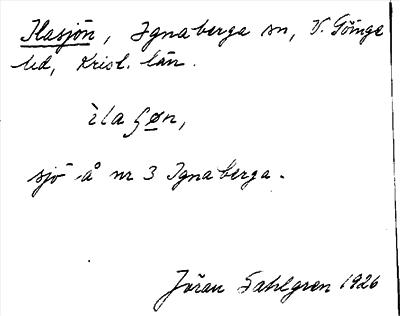 Ilasjön, Ignaberga sn, V. Göinge
hd, Krist. län.
ìlaʃøn,
sjö å nr 3 Ignaberga.
Jöran Sahlgren 1926